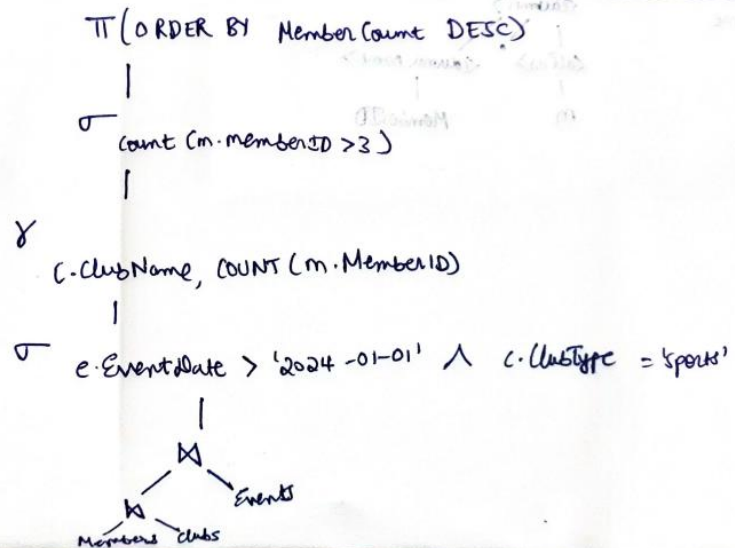 π (ORDER BY MemberCount DESC)
σ count (m.memberID >3)
γ
C.ClubName, COUNT (m.MemberID)
σ e.EventDate > '2024-01-01' ∧ c.ClubType = 'sports'
⋈
⋈ Events
Members clubs